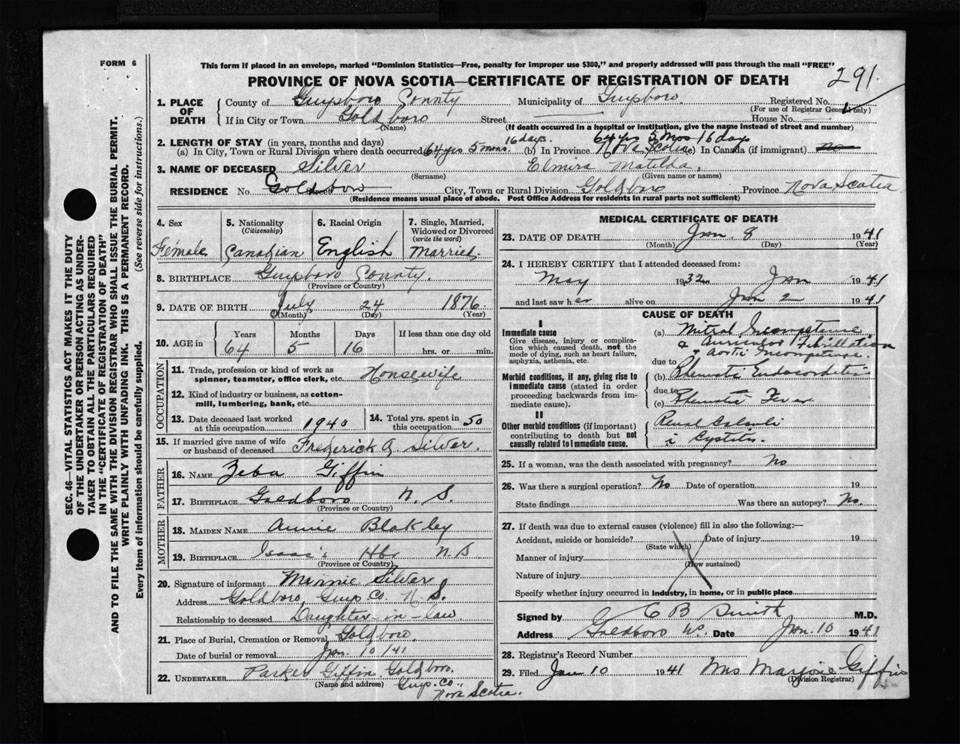 FORM 6
This form if placed in an envelope, marked "Dominion Statistics—Free, penalty for improper use $300," and properly addressed will pass through the mail "FREE"
291
PROVINCE OF NOVA SCOTIA—CERTIFICATE OF REGISTRATION OF DEATH
SEC. 46—VITAL STATISTICS ACT MAKES IT THE DUTY
OF THE UNDERTAKER OR PERSON ACTING AS UNDER-
TAKER TO OBTAIN ALL THE PARTICULARS REQUIRED
IN THE "CERTIFICATE OF REGISTRATION OF DEATH"
AND TO FILE THE SAME WITH THE DIVISION REGISTRAR WHO SHALL ISSUE THE BURIAL PERMIT.
WRITE PLAINLY WITH UNFADING INK. THIS IS A PERMANENT RECORD.
Every item of information should be carefully supplied. (See reverse side for instructions.)
1. PLACE OF DEATH County of Guysboro County Municipality of Guysboro. Registered No.
(For use of Registrar General only)
If in City or Town Goldboro Street House No.
(Name) (If death occurred in a hospital or institution, give the name instead of street and number)
2. LENGTH OF STAY (in years, months and days)
(a) In City, Town or Rural Division where death occurred 64 yrs 5 mons. 16 days. (b) In Province 64 yrs 5 Mos 16 days Nova Scotia (c) In Canada (if immigrant) no
3. NAME OF DECEASED Silver Elmira Matilda.
(Surname) (Given name or names)
RESIDENCE No. Goldboro Street City, Town or Rural Division Goldboro Province Nova Scotia.
(Residence means usual place of abode. Post Office Address for residents in rural parts not sufficient)
4. Sex Female
5. Nationality (Citizenship) Canadian
6. Racial Origin English
7. Single, Married, Widowed or Divorced (write the word) Married.
8. BIRTHPLACE Guysboro County.
(Province or Country)
9. DATE OF BIRTH July 24 1876
(Month) (Day) (Year)
10. AGE in Years Months Days If less than one day old
64 5 16 hrs. or min.
OCCUPATION
11. Trade, profession or kind of work as spinner, teamster, office clerk, etc. Housewife
12. Kind of industry or business, as cotton-mill, lumbering, bank, etc.
13. Date deceased last worked at this occupation. 1940
14. Total yrs. spent in this occupation. 50
15. If married give name of wife or husband of deceased Frederick A. Silver.
FATHER
16. NAME Zeba Giffin
17. BIRTHPLACE Goldboro N. S.
(Province or Country)
MOTHER
18. MAIDEN NAME Annie Blakley
19. BIRTHPLACE Isaac's Hbr N.S
(Province or Country)
20. Signature of informant Minnie Silver
Address Goldboro, Guys Co. N. S.
Relationship to deceased Daughter-in-law
21. Place of Burial, Cremation or Removal Goldboro
Date of burial or removal Jan. 10 /41
22. UNDERTAKER Parker Giffin Goldboro.
(Name and address) Guys. Co. Nova Scotia.
MEDICAL CERTIFICATE OF DEATH
23. DATE OF DEATH Jan. 8 1941
(Month) (Day) (Year)
24. I HEREBY CERTIFY that I attended deceased from:
May 1932 to Jan 1941
and last saw her alive on Jan 2 1941
CAUSE OF DEATH
I
Immediate cause
Give disease, injury or complication which caused death, not the mode of dying, such as heart failure, asphyxia, asthenia, etc.
(a) Mitral Incompetence
& Auricular Fibrillation
& Aortic Incompetence.
due to
Morbid conditions, if any, giving rise to immediate cause (stated in order proceeding backwards from immediate cause).
(b) Rheumatic Endocarditis
due to
(c) Rheumatic Fever
II
Other morbid conditions (if important) contributing to death but not causally related to immediate cause.
Renal Calculi
c̄ Cystitis.
25. If a woman, was the death associated with pregnancy? No
26. Was there a surgical operation? No Date of operation 19
State findings Was there an autopsy? No.
27. If death was due to external causes (violence) fill in also the following:—
Accident, suicide or homicide? Date of injury 19
(State which)
Manner of injury
(How sustained)
Nature of injury
Specify whether injury occurred in industry, in home, or in public place
Signed by C B Smith M.D.
Address Goldboro NS. Date Jan. 10 1941
28. Registrar's Record Number
29. Filed Jan 10 1941 Mrs Marjorie Giffin
(Division Registrar)